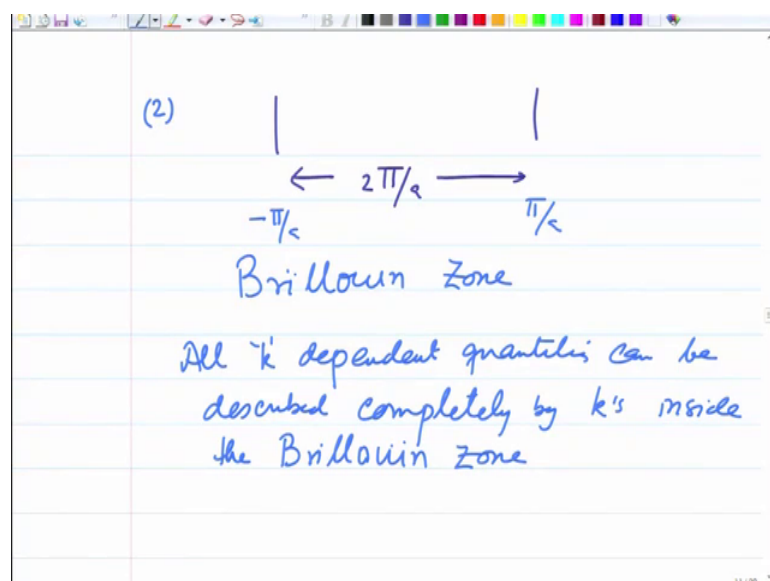 (2)
2π/a
-π/a π/a
Brillouin Zone
All 'k' dependent quantities can be
described completely by k's inside
the Brillouin zone